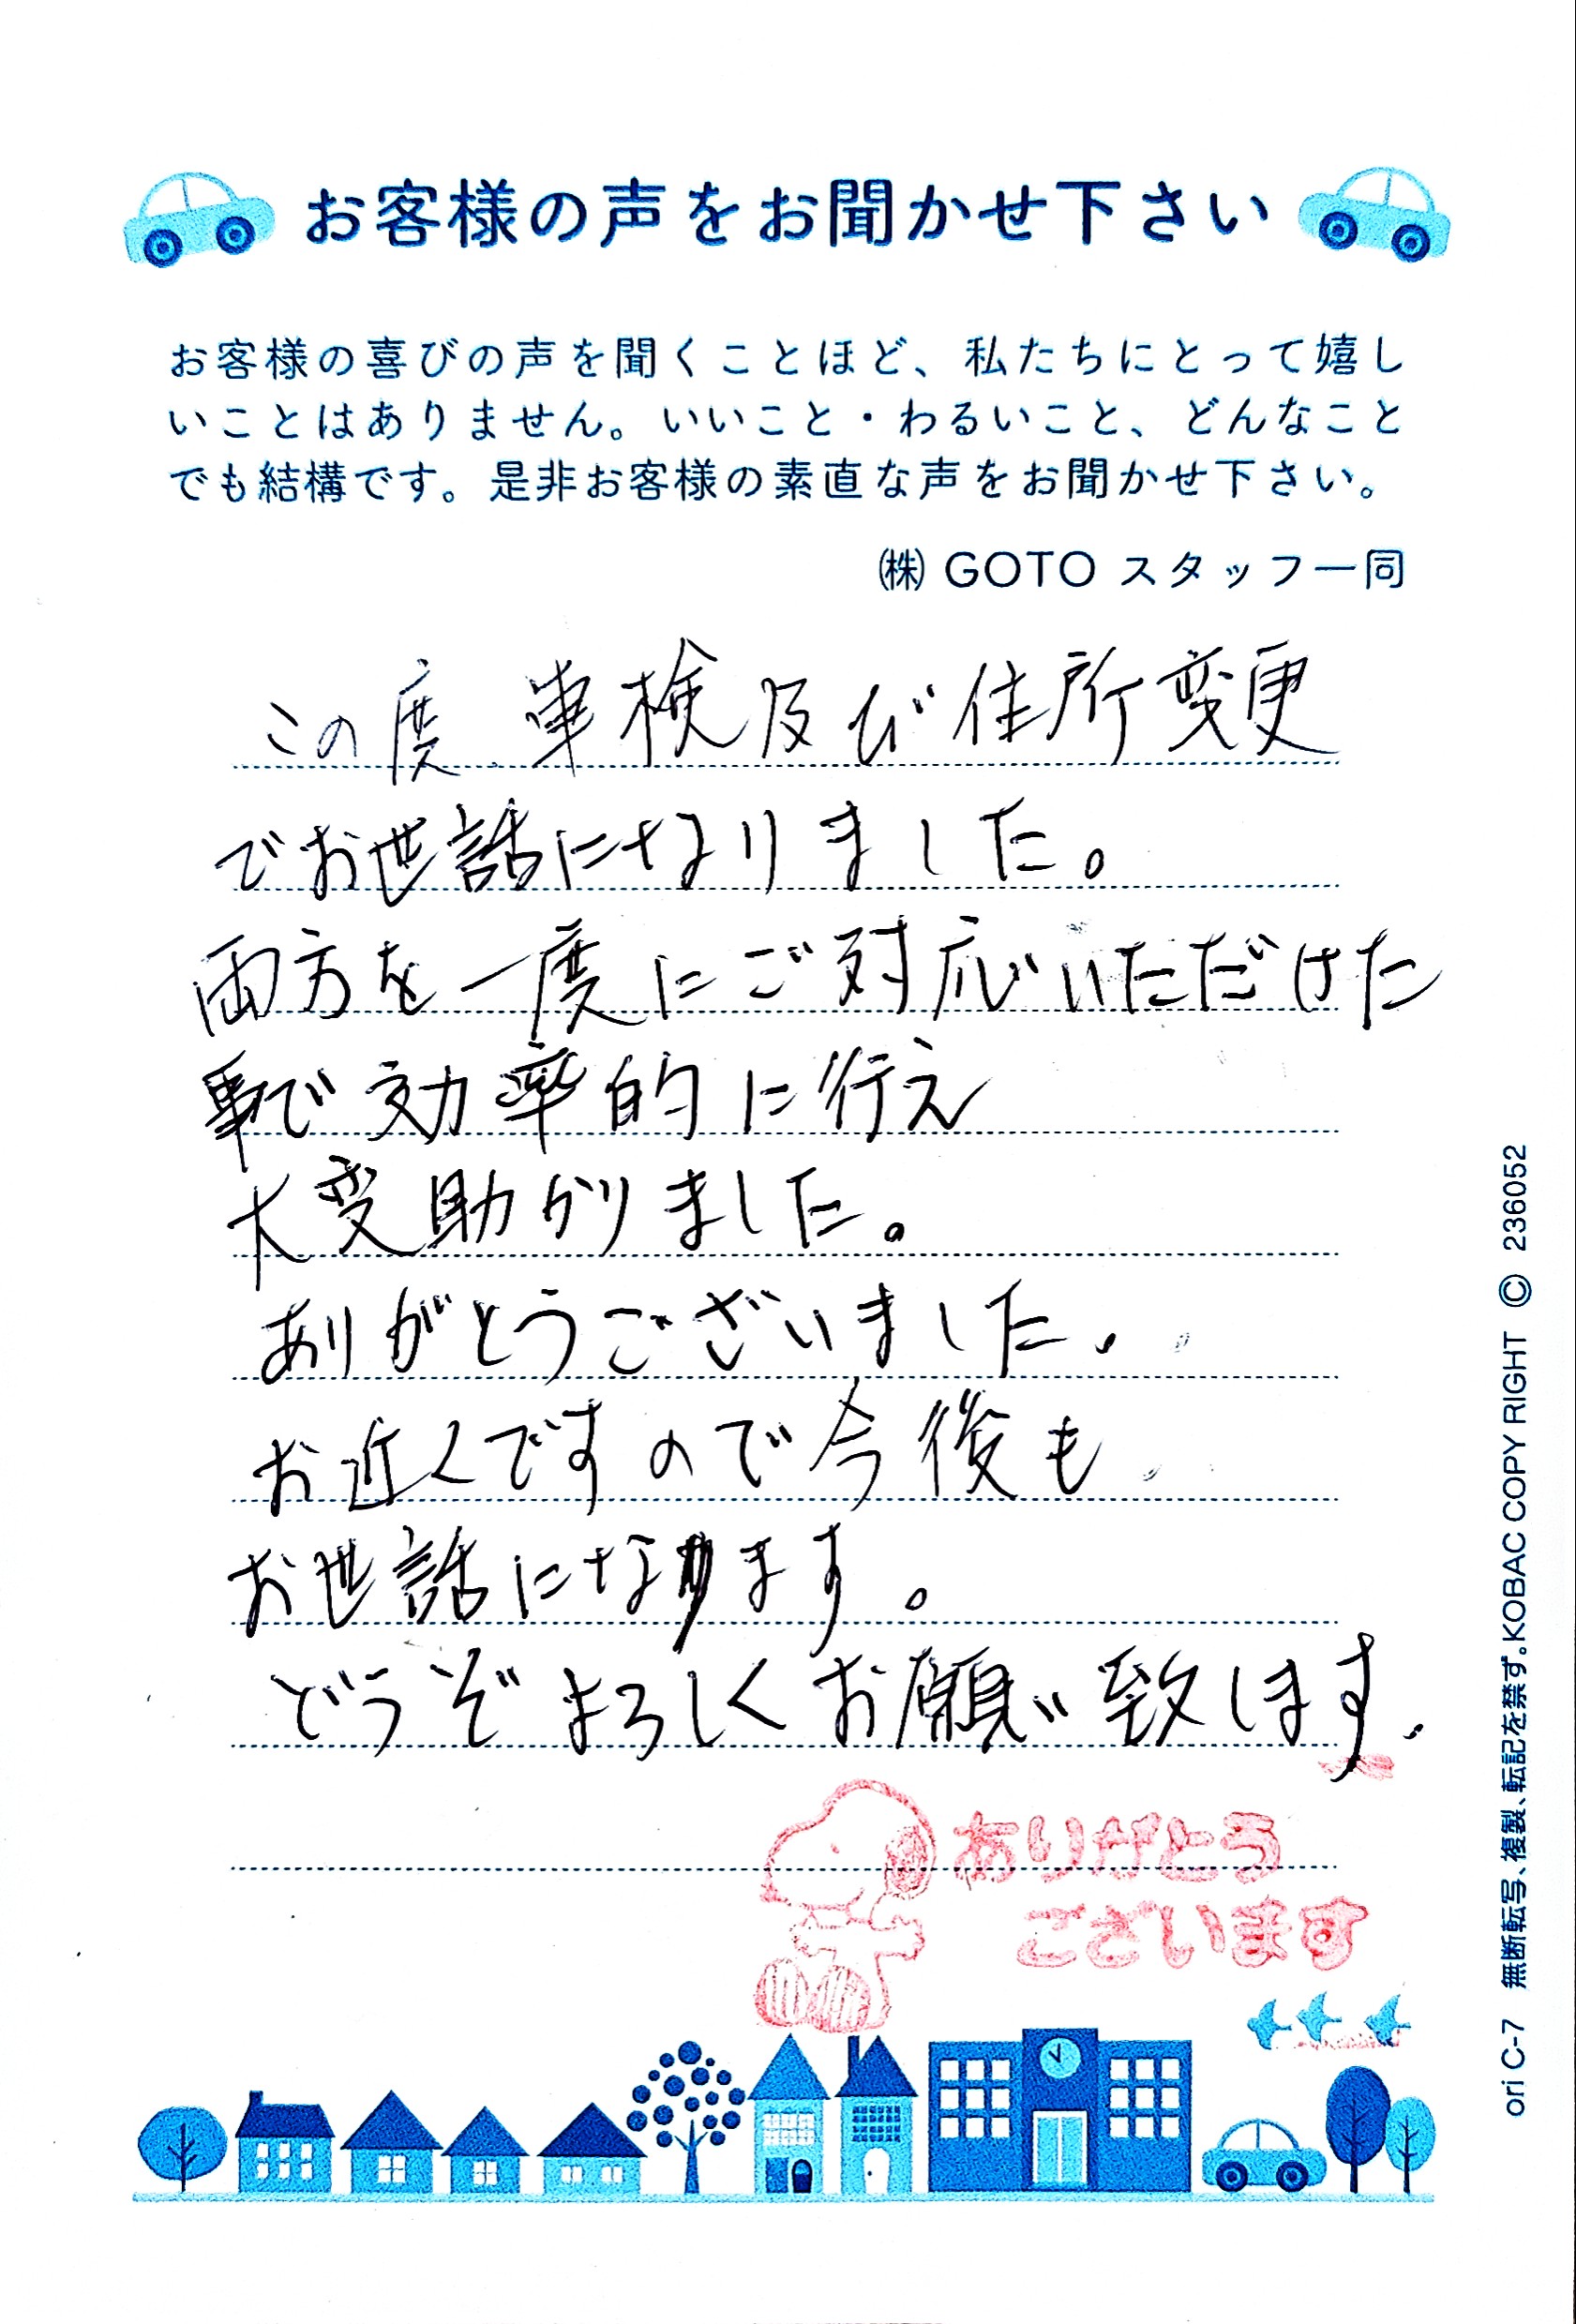 お客様の声をお聞かせ下さい
お客様の喜びの声を聞くことほど、私たちにとって嬉し
いことはありません。いいこと・わるいこと、どんなこと
でも結構です。是非お客様の素直な声をお聞かせ下さい。
㈱ GOTO スタッフ一同
この度、車検及び住所変更
でお世話になりました。
両方を一度にご対応いただけた
事で効率的に行え
大変助かりました。
ありがとうございました。
お近くですので今後も
お世話になります。
どうぞよろしくお願い致します。
ありがとう
ございます
ori C-7 無断転写、複製、転記を禁ず。KOBAC COPY RIGHT © 236052